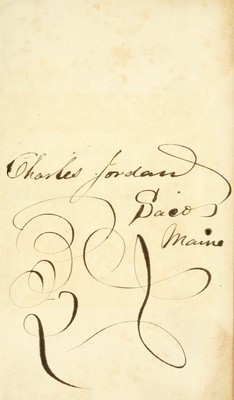 Charles Jordan
Saco
Maine